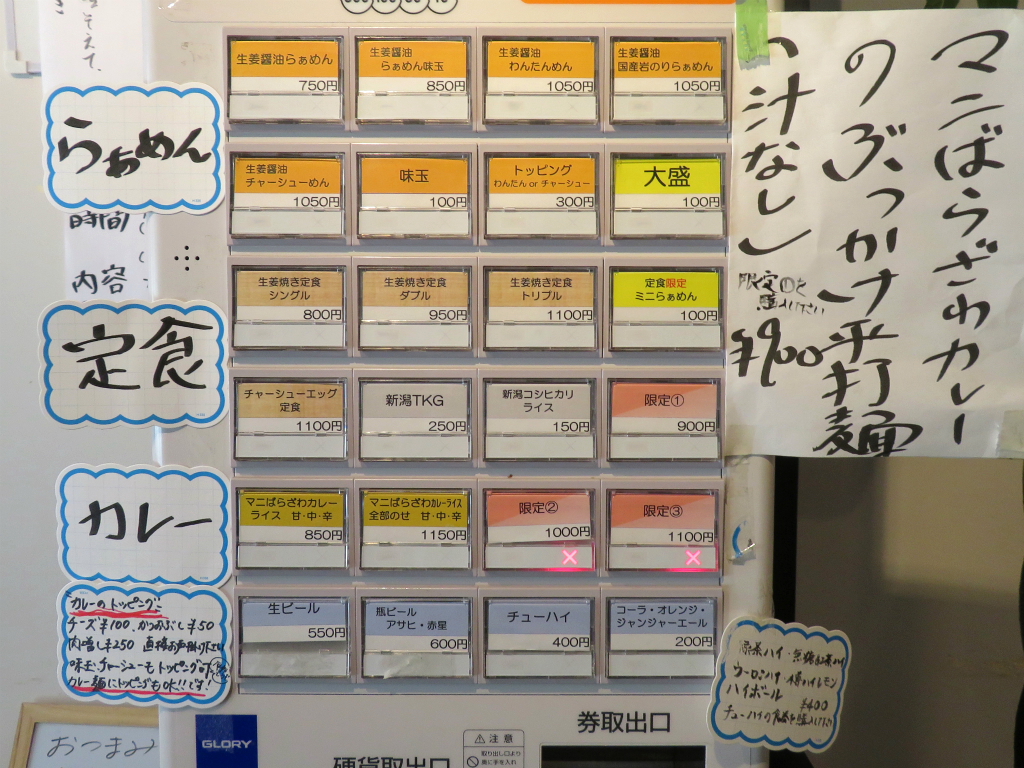 らぁめん
時間
内容
定食
カレー
カレーのトッピング
チーズ¥100、かつおぶし¥50
肉増し¥250
味玉・チャーシューもトッピング
カレー麺にトッピングも
おつまみ
生姜醤油らぁめん
750円
生姜醤油
らぁめん味玉
850円
生姜醤油
わんたんめん
1050円
生姜醤油
国産岩のりらぁめん
1050円
生姜醤油
チャーシューめん
1050円
味玉
100円
トッピング
わんたん or チャーシュー
300円
大盛
100円
生姜焼き定食
シングル
800円
生姜焼き定食
ダブル
950円
生姜焼き定食
トリプル
1100円
定食限定
ミニらぁめん
100円
チャーシューエッグ
定食
1100円
新潟TKG
250円
新潟コシヒカリ
ライス
150円
限定①
900円
マニばらざわカレー
ライス 甘・中・辛
850円
マニばらざわカレーライス
全部のせ 甘・中・辛
1150円
限定②
1000円
限定③
1100円
生ビール
550円
瓶ビール
アサヒ・赤星
600円
チューハイ
400円
コーラ・オレンジ・
ジャンジャーエール
200円
GLORY
券取出口
硬貨取出口
⚠注意
取り出し口より
奥に手を入れ
マニばらざわカレー
のぶっかけ平打麺
汁なし
限定①を
購入下さい
¥900
ハイボール
¥400